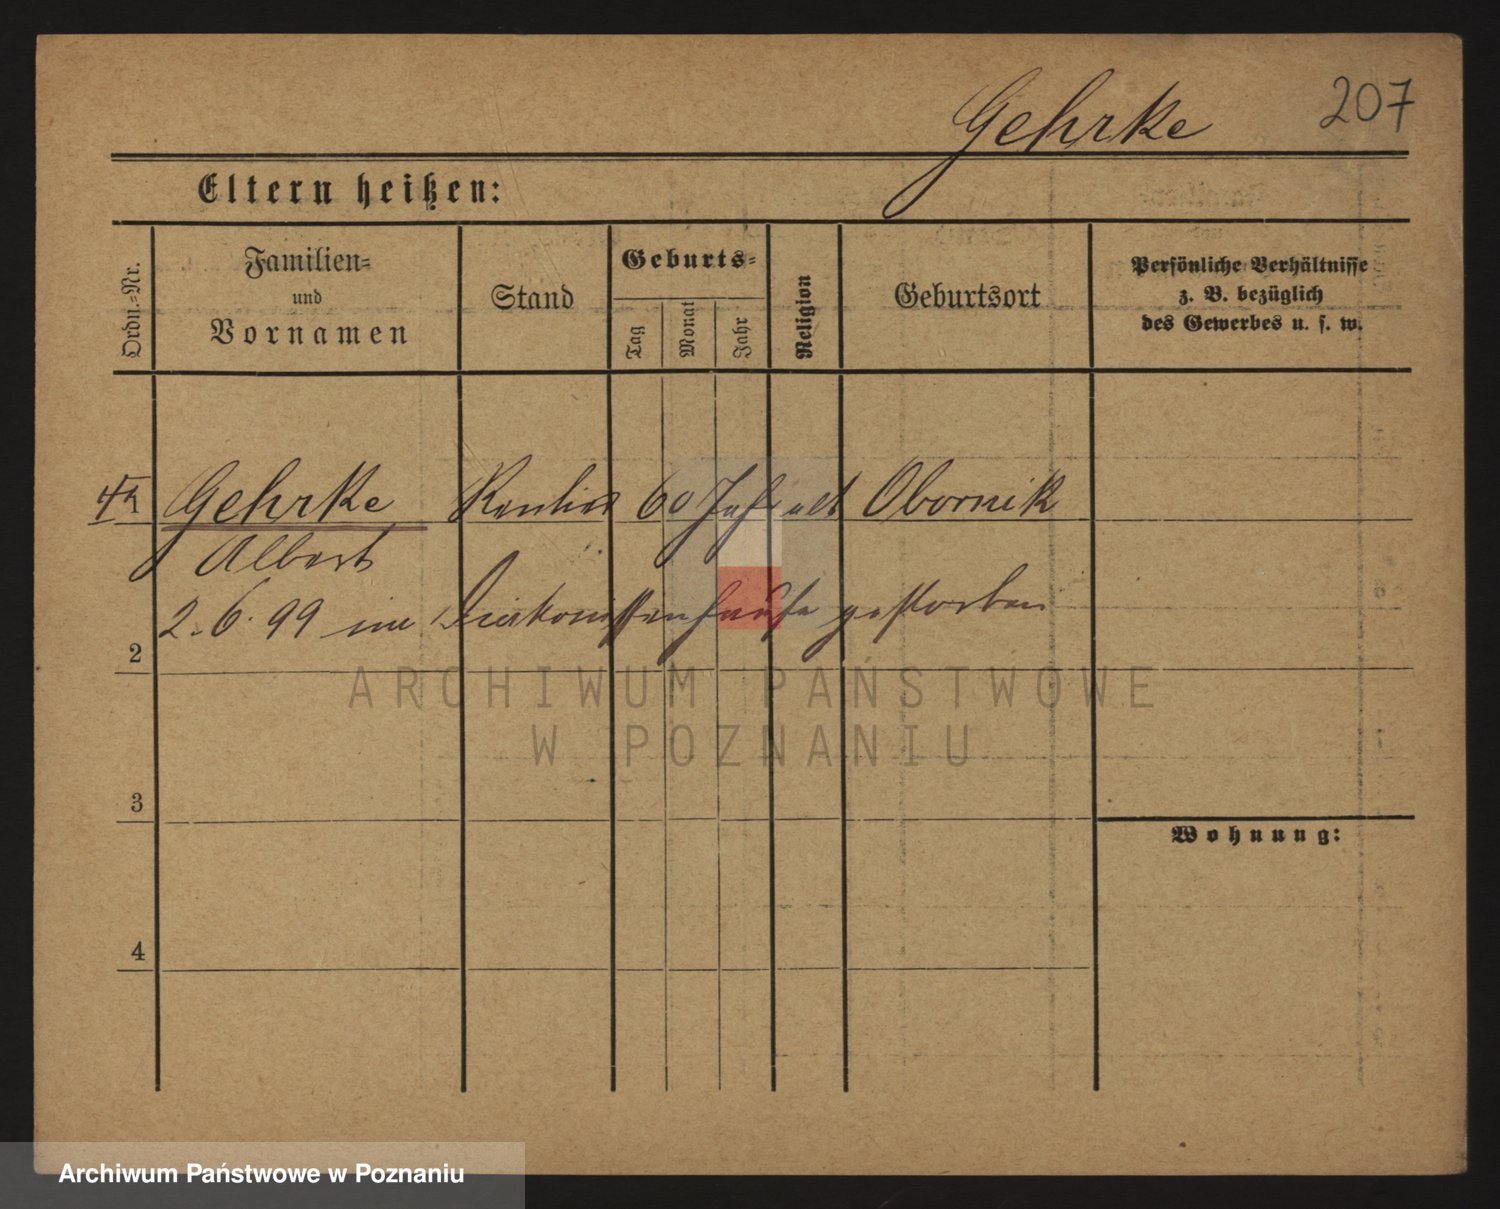 Gehrke 207
Eltern heißen:
Ordn.-Nr.
Familien-
und
Vornamen
Stand
Geburts-
Tag
Monat
Jahr
Religion
Geburtsort
Persönliche Verhältnisse
z. B. bezüglich
des Gewerbes u. s. w.
Gehrke Rentier 60 Jahr alt Obornik
Albert
2.6.99 im Diakonissenhause gestorben
2
ARCHIWUM PAŃSTWOWE
W POZNANIU
3
Wohnung:
4
Archiwum Państwowe w Poznaniu